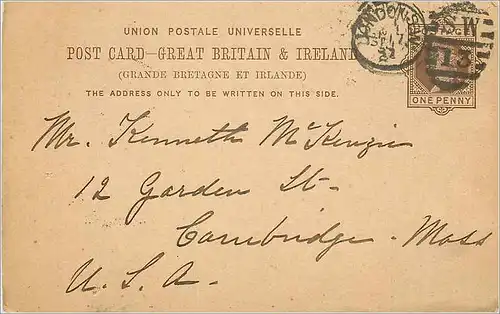 UNION POSTALE UNIVERSELLE
POST CARD—GREAT BRITAIN & IRELAND
(GRANDE BRETAGNE ET IRLANDE)
THE ADDRESS ONLY TO BE WRITTEN ON THIS SIDE.
LONDON S.W
S.W
13
ONE PENNY
Mr. Kenneth McKenzie
12 Garden St-
Cambridge - Mass
U.S.A-